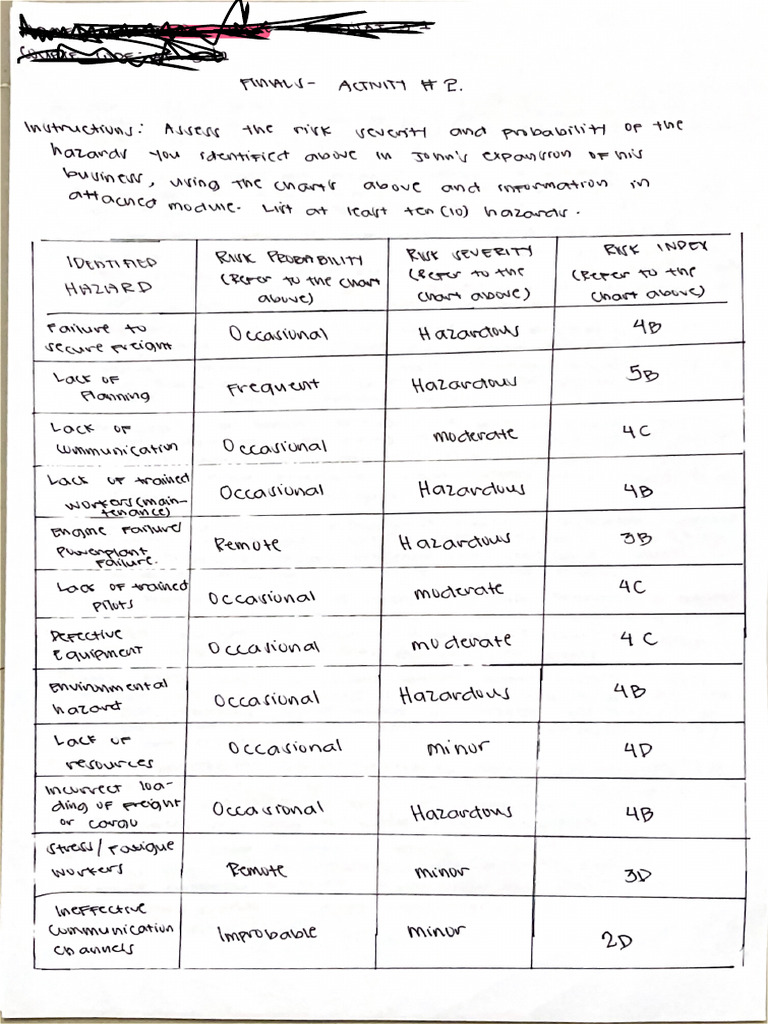 FINALS- ACTIVITY # 2.
Instructions: Assess the risk severity and probability of the
hazards you identified above in John's expansion of his
business, using the charts above and information in
attached module. List at least ten (10) hazards.
IDENTIFIED HAZARD | RISK PROBABILITY (Refer to the chart above) | RISK SEVERITY (Refer to the chart above) | RISK INDEX (Refer to the chart above)
Failure to secure freight | Occasional | Hazardous | 4B
Lack of Planning | Frequent | Hazardous | 5B
Lack of communication | Occasional | moderate | 4C
Lack of trained workers (main-tenance) | Occasional | Hazardous | 4B
Engine Failure/ Powerplant Failure. | Remote | Hazardous | 3B
Lack of trained pilots | Occasional | moderate | 4C
Defective Equipment | Occasional | moderate | 4C
Environmental hazard | Occasional | Hazardous | 4B
Lack of resources | Occasional | minor | 4D
Incorrect loa-ding of freight or cargo | Occasional | Hazardous | 4B
Stress/Fatigue workers | Remote | minor | 3D
Ineffective communication channels | Improbable | minor | 2D